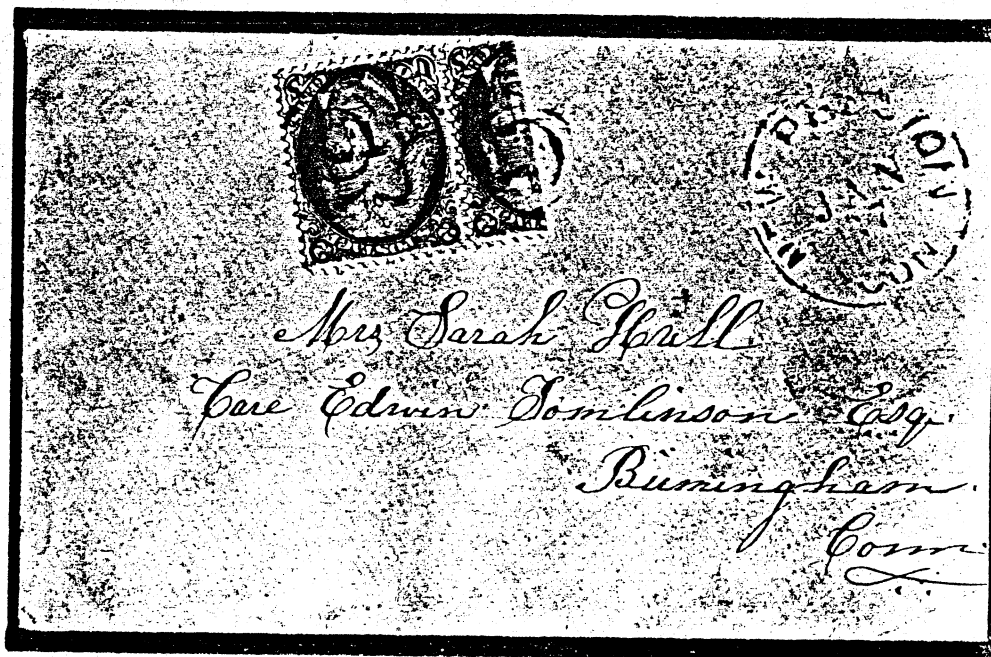 Mrs Sarah Hull
Care Edwin Tomlinson Esq.
Birmingham.
Conn.